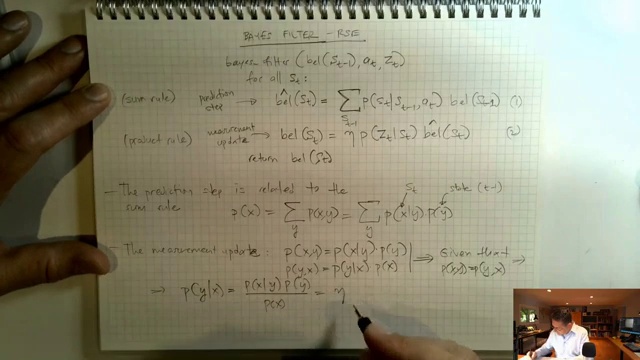 BAYES FILTER - RSE
bayes filter (bel(S_{t-1}), a_t, Z_t)
for all S_t:
(sum rule) prediction step → bel̂(S_t) = Σ_{S_{t-1}} p(S_t|S_{t-1}, a_t) bel(S_{t-1}) (1)
(product rule) measurement update → bel(S_t) = η p(Z_t|S_t) bel̂(S_t) (2)
return bel(S_t)
S_t state (t-1)
- The prediction step is related to the
sum rule
p(x) = Σ_y p(x,y) = Σ_y p(x|y)·p(y)
- The measurement update: p(x,y) = p(x|y)·p(y) ⟹ Given that ⟹
p(y,x) = p(y|x) p(x) p(x,y) = p(y,x)
⟹ p(y|x) = p(x|y) p(y) / p(x) = η